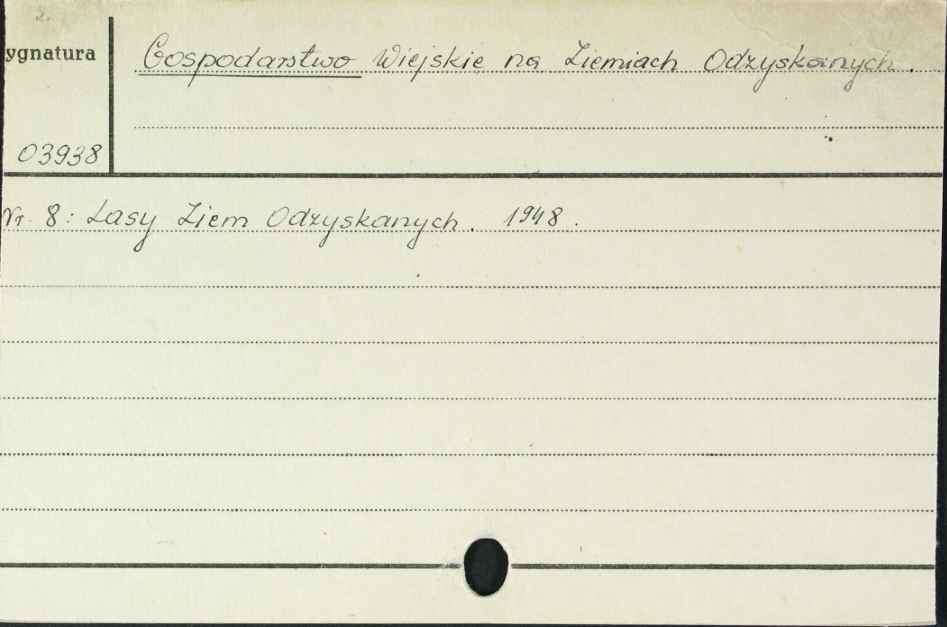 2.
ygnatura
Gospodarstwo Wiejskie na Ziemiach Odzyskanych.
03938
Nr 8: Lasy Ziem Odzyskanych. 1948.